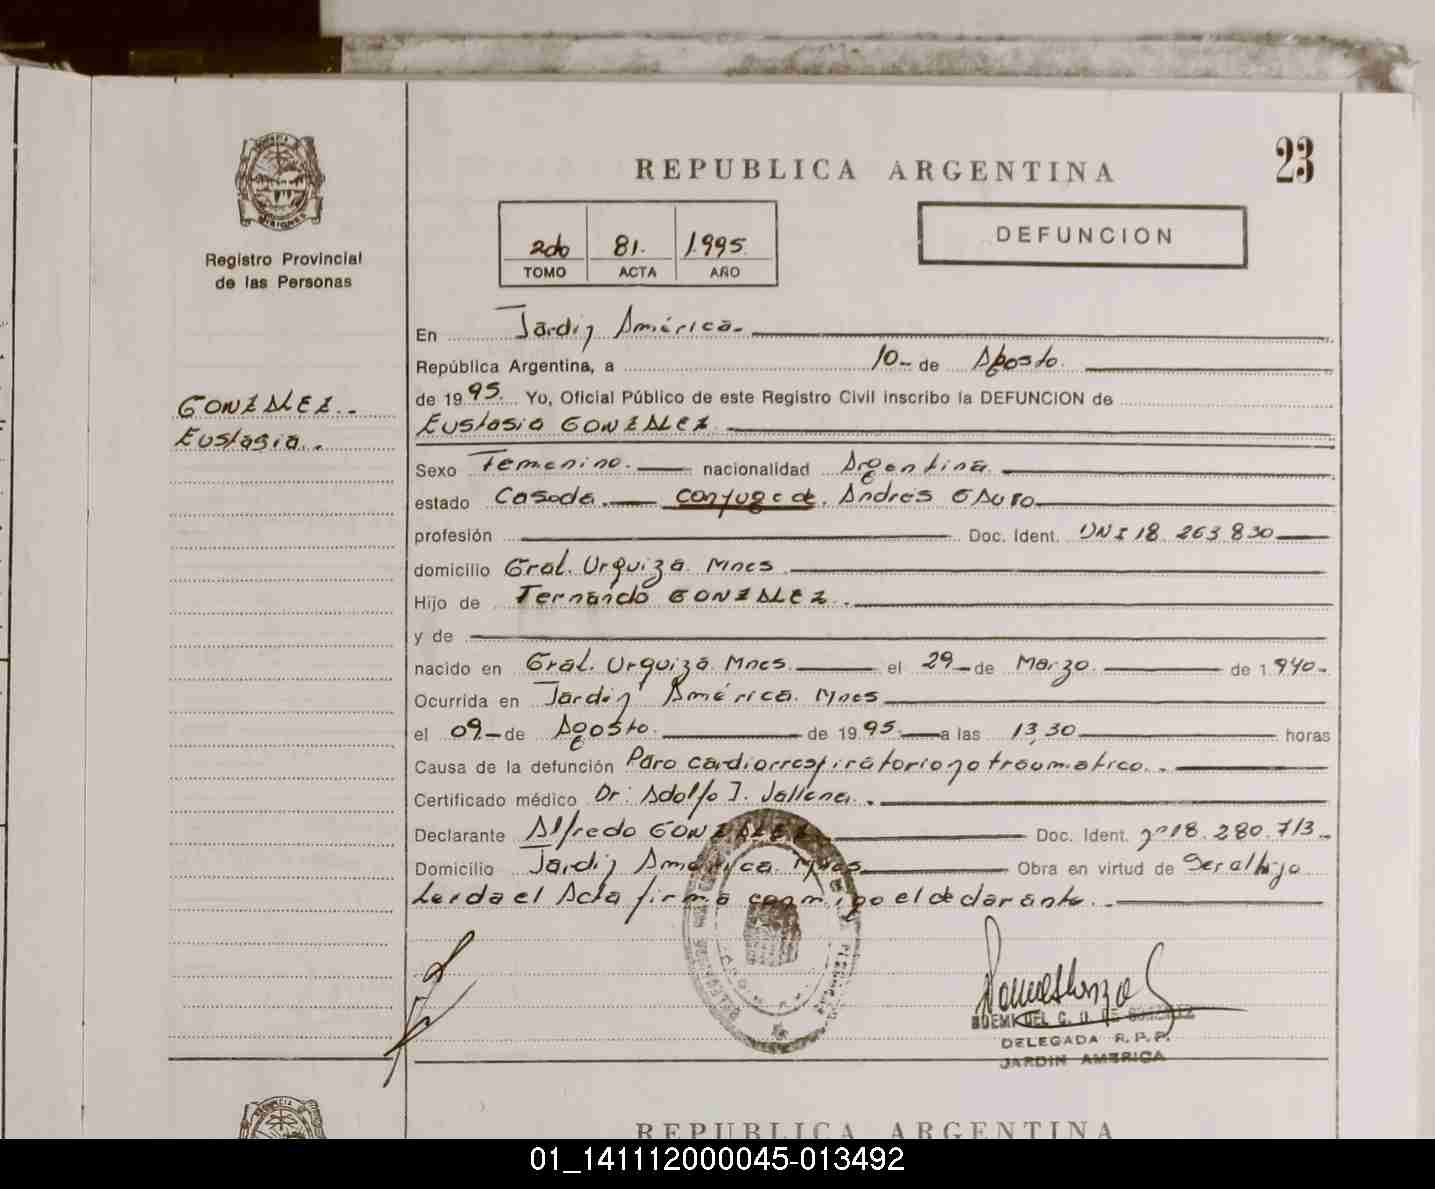 23
REPUBLICA ARGENTINA
DEFUNCION
2do 81. 1.995.
TOMO ACTA AÑO
Registro Provincial
de las Personas
GONZALEZ.-
Eustasia.-
En Jardín América.-
República Argentina, a 10- de Agosto.
de 1995. Yo, Oficial Público de este Registro Civil inscribo la DEFUNCION de
Eustasia GONZALEZ.
Sexo Femenino. nacionalidad Argentina.
estado Casada. conyuge de. Andrés GAUTO
profesión Doc. Ident. DNI 18.263.830
domicilio Gral. Urquiza. Mnes
Hijo de Fernando GONZALEZ.
y de
nacido en Gral. Urquiza. Mnes. el 29 de Marzo. de 1.940.-
Ocurrida en Jardín América. Mnes
el 09 de Agosto. de 1995. a las 13,30 horas
Causa de la defunción Paro cardiorrespiratorio no traumatico.
Certificado médico Dr: Adolfo J.
Declarante Alfredo GONZALEZ Doc. Ident. nº 18.280.713.-
Domicilio Jardín América. Mnes Obra en virtud de ser al hijo
Leida el Acta firma conmigo el declarante.-
DELEGADA R.P.P.
JARDIN AMERICA
REPUBLICA ARGENTINA
01_141112000045-013492